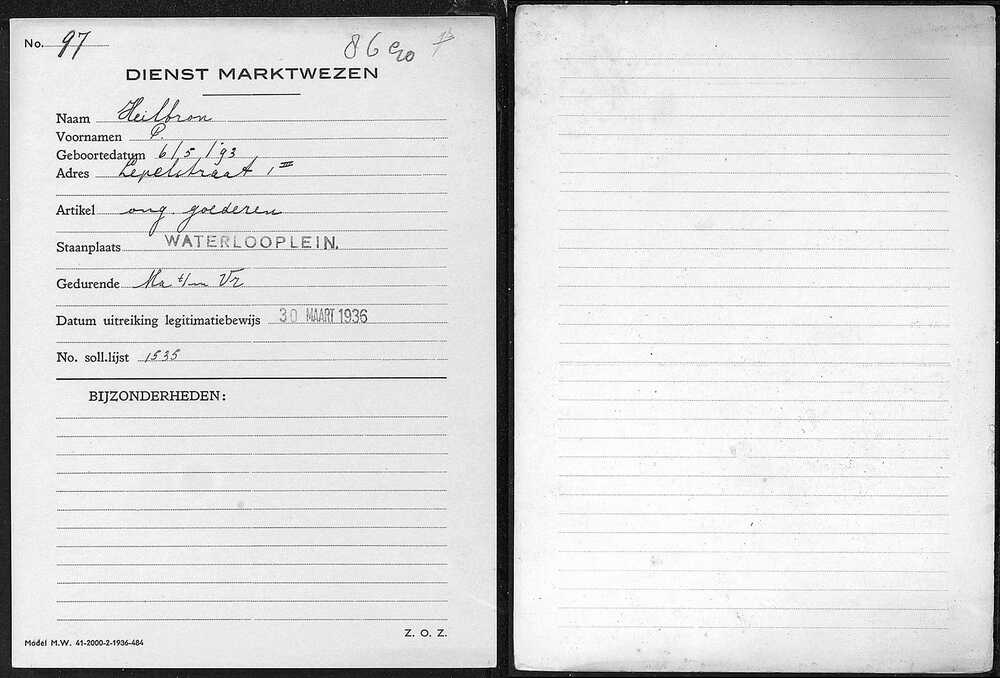 No. 97
86
DIENST MARKTWEZEN
Naam Heilbron
Voornamen P.
Geboortedatum 6/5/'93
Adres Lepelstraat 1 III
Artikel ong. goederen
Staanplaats WATERLOOPLEIN.
Gedurende Ma t/m Vr
Datum uitreiking legitimatiebewijs 30 MAART 1936
No. soll.lijst 1535
BIJZONDERHEDEN:
Z. O. Z.
Model M.W. 41-2000-2-1936-484